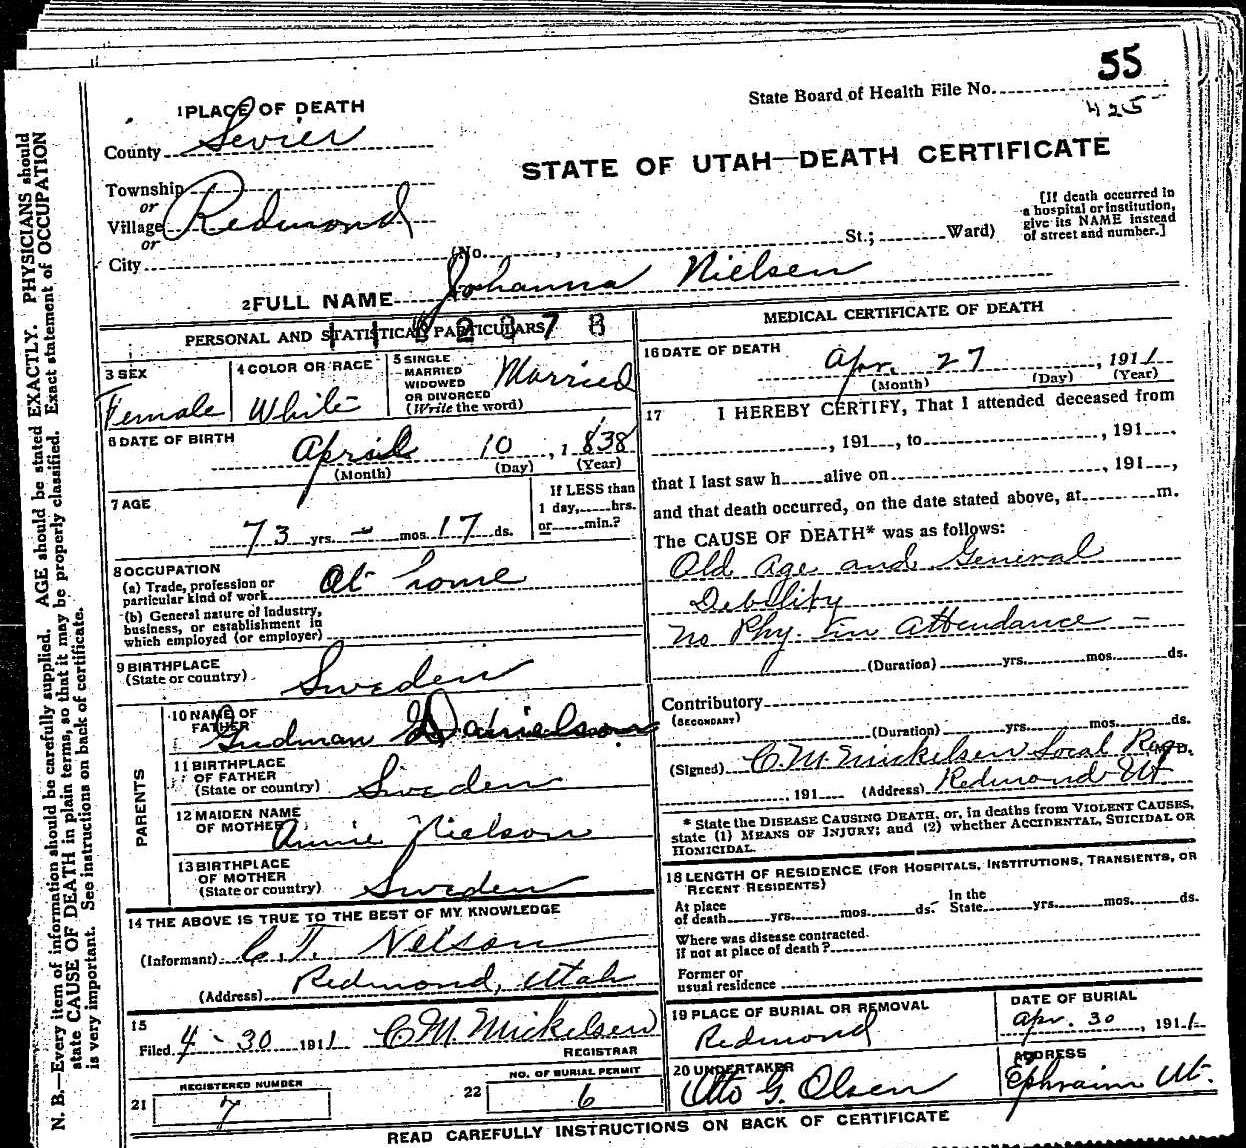 55
State Board of Health File No.
425
1 PLACE OF DEATH
County Sevier
STATE OF UTAH—DEATH CERTIFICATE
Township
or
Village Redmond
or
City
(No. , St.; Ward)
[If death occurred in
a hospital or institution,
give its NAME instead
of street and number.]
2 FULL NAME Johanna Nielsen
PERSONAL AND STATISTICAL PARTICULARS
3 SEX
Female
4 COLOR OR RACE
White
5 SINGLE
MARRIED
WIDOWED
OR DIVORCED
(Write the word)
Married
6 DATE OF BIRTH
April 10, 1838
(Month) (Day) (Year)
7 AGE
73 yrs. - mos. 17 ds.
If LESS than
1 day, hrs.
or min.?
8 OCCUPATION
(a) Trade, profession or
particular kind of work At home
(b) General nature of industry,
business, or establishment in
which employed (or employer)
9 BIRTHPLACE
(State or country) Sweden
PARENTS
10 NAME OF
FATHER Gudman Danielson
11 BIRTHPLACE
OF FATHER
(State or country) Sweden
12 MAIDEN NAME
OF MOTHER Annie Nielson
13 BIRTHPLACE
OF MOTHER
(State or country) Sweden
14 THE ABOVE IS TRUE TO THE BEST OF MY KNOWLEDGE
(Informant) C. T. Nelson
(Address) Redmond, Utah
15
Filed 4 - 30 1911 C M Mickelsen
REGISTRAR
REGISTERED NUMBER
21 7
NO. OF BURIAL PERMIT
22 6
MEDICAL CERTIFICATE OF DEATH
16 DATE OF DEATH
Apr. 27, 1911
(Month) (Day) (Year)
17 I HEREBY CERTIFY, That I attended deceased from
, 191 , to , 191 .
that I last saw h alive on , 191 ,
and that death occurred, on the date stated above, at m.
The CAUSE OF DEATH* was as follows:
Old Age and General
Debility
No Phy. in Attendance -
(Duration) yrs. mos. ds.
Contributory
(SECONDARY)
(Duration) yrs. mos. ds.
(Signed) C M Mickelsen Local Reg M.D.
191 (Address) Redmond Ut
* State the DISEASE CAUSING DEATH, or, in deaths from VIOLENT CAUSES,
state (1) MEANS OF INJURY; and (2) whether ACCIDENTAL, SUICIDAL OR
HOMICIDAL.
18 LENGTH OF RESIDENCE (FOR HOSPITALS, INSTITUTIONS, TRANSIENTS, OR
RECENT RESIDENTS)
At place
of death yrs. mos. ds.
In the
State yrs. mos. ds.
Where was disease contracted
if not at place of death?
Former or
usual residence
19 PLACE OF BURIAL OR REMOVAL
Redmond
DATE OF BURIAL
Apr. 30, 1911
20 UNDERTAKER
Otto G. Olsen
ADDRESS
Ephraim Ut.
READ CAREFULLY INSTRUCTIONS ON BACK OF CERTIFICATE
N. B.—Every item of information should be carefully supplied. AGE should be stated EXACTLY. PHYSICIANS should
state CAUSE OF DEATH in plain terms, so that it may be properly classified. Exact statement of OCCUPATION
is very important. See instructions on back of certificate.